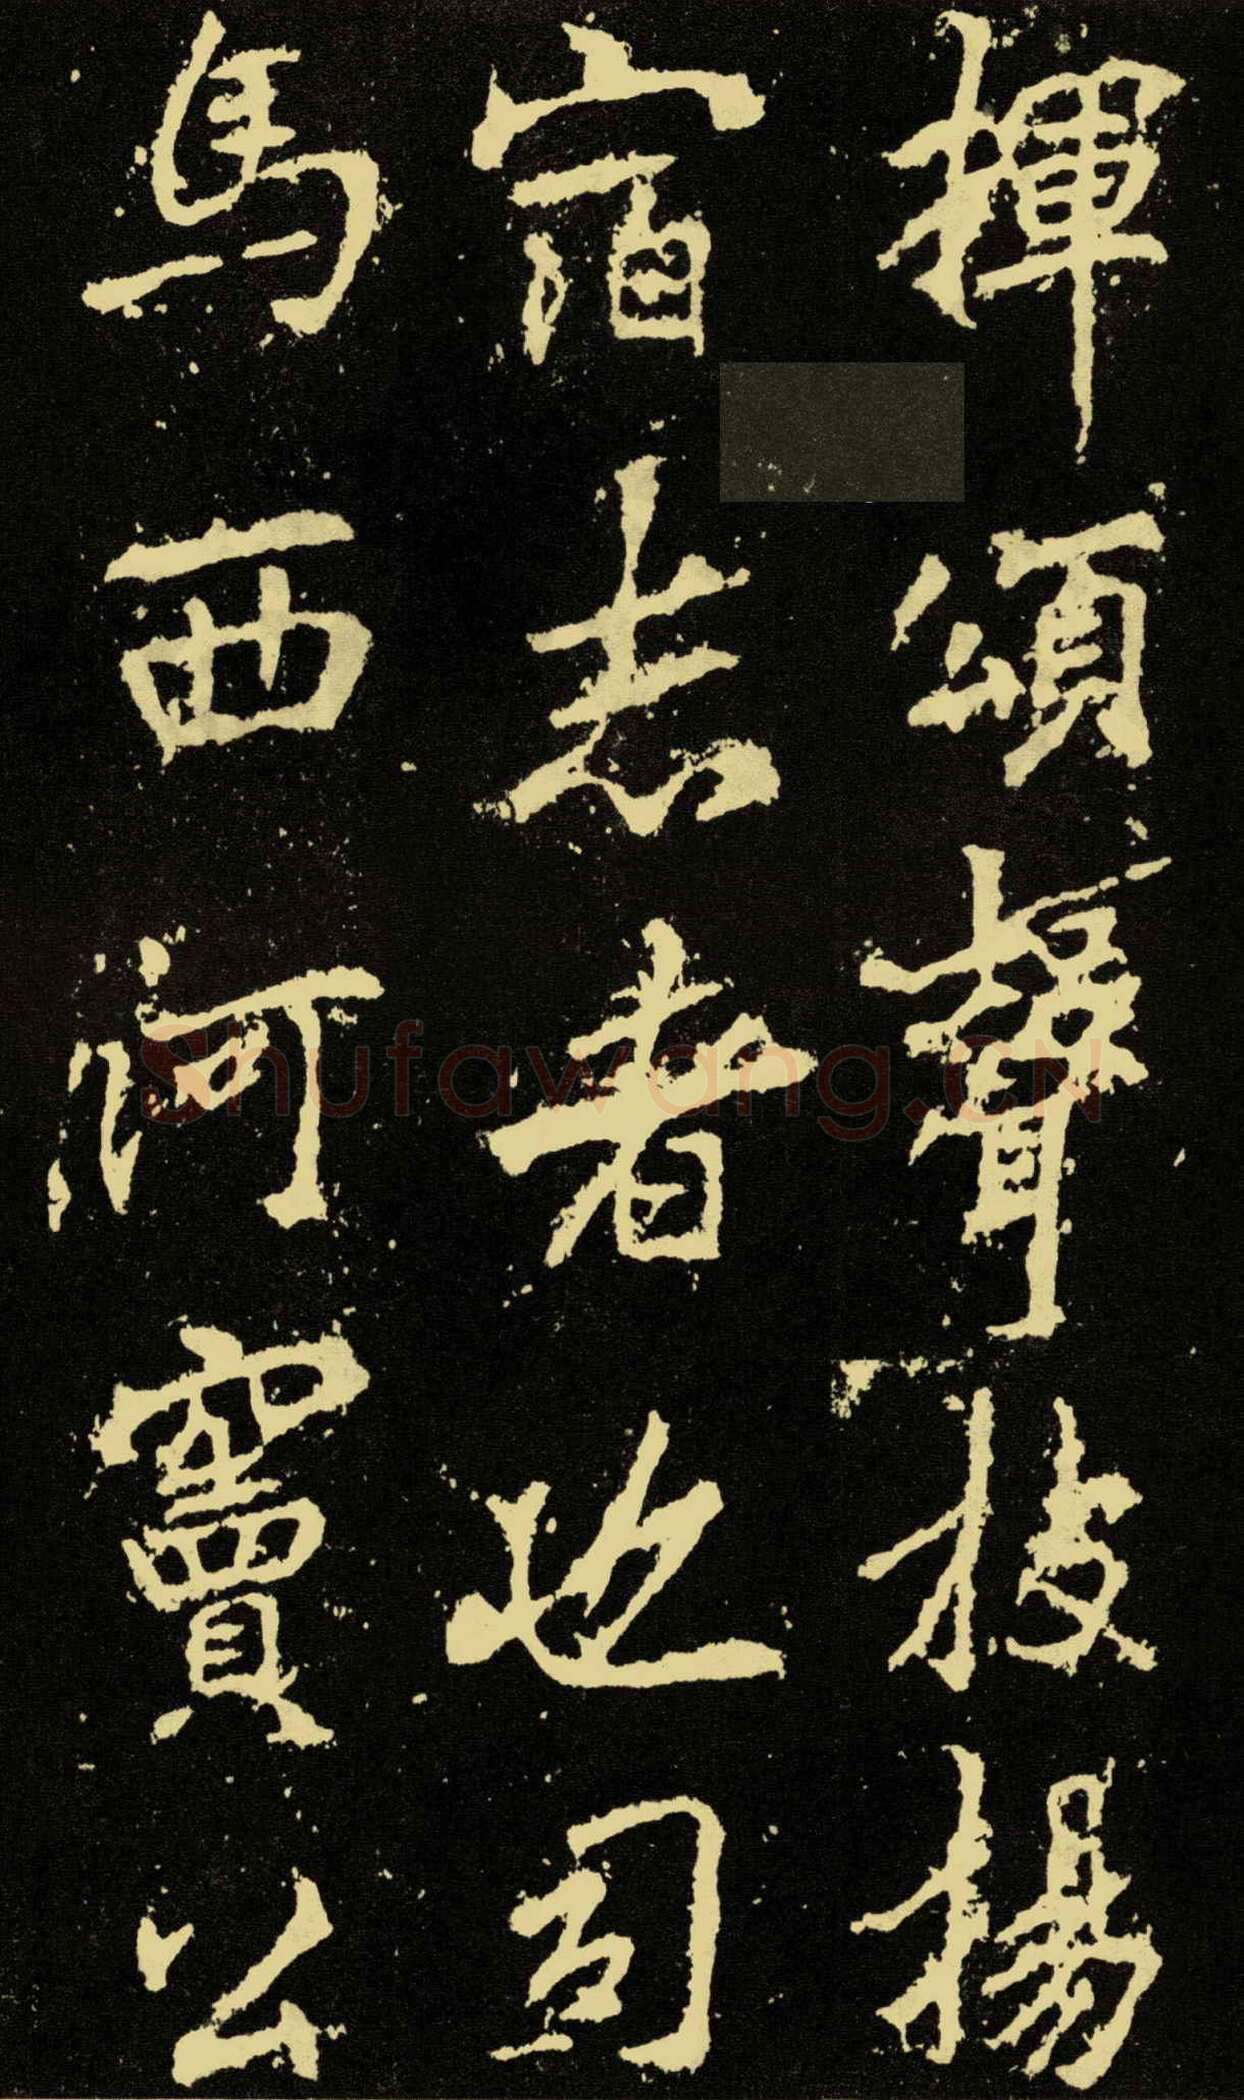 揮頌聲技揚
宿志者也司
馬西河竇公
Shufawang.CN